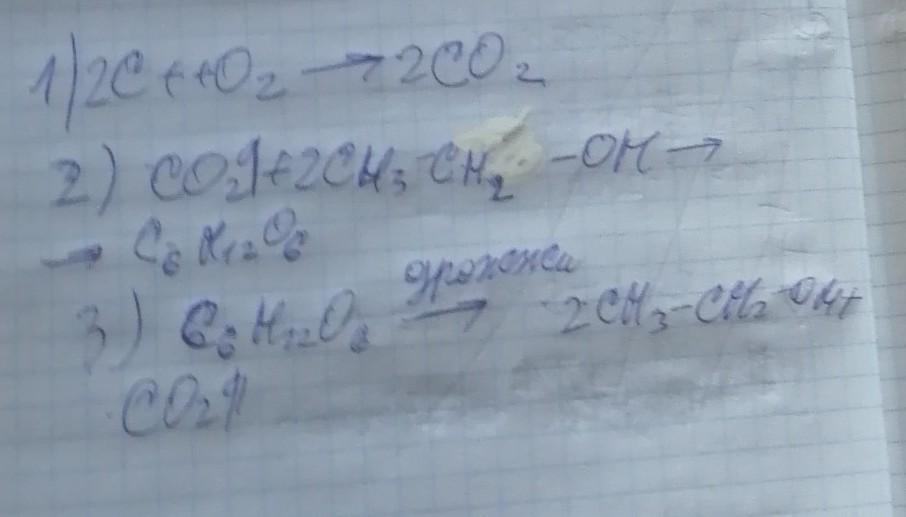 1) 2C + O₂ → 2CO₂
2) CO₂↑ + 2CH₃-CH₂-OH →
→ C₆H₁₂O₆
3) C₆H₁₂O₆ дрожжи → 2CH₃-CH₂-OH+
CO₂↑